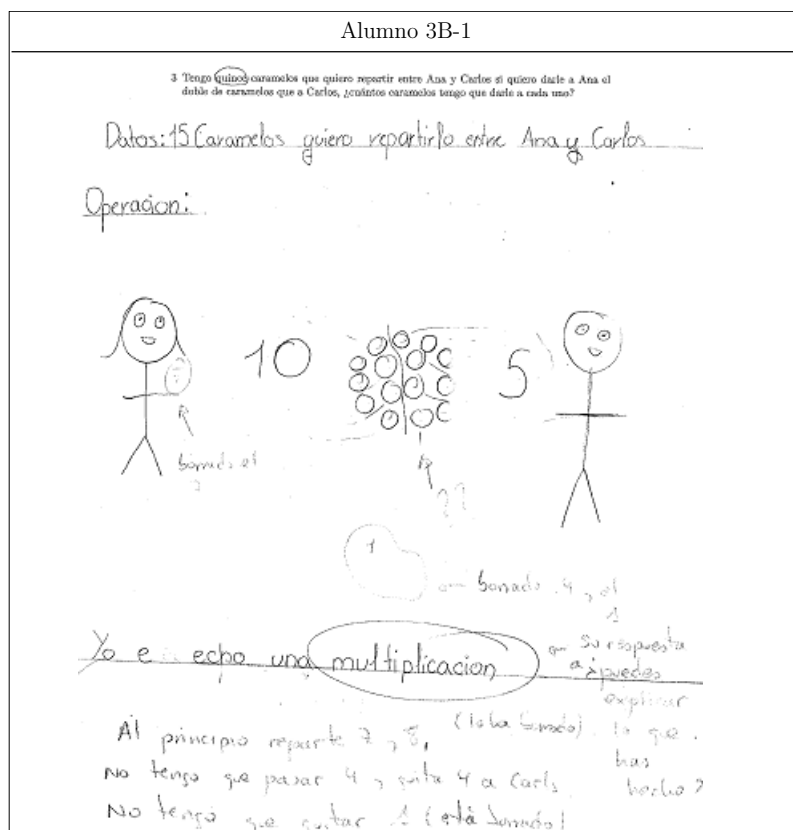 Alumno 3B-1
3 Tengo quince caramelos que quiero repartir entre Ana y Carlos si quiero darle a Ana el
doble de caramelos que a Carlos, ¿cuántos caramelos tengo que darle a cada uno?
Datos: 15 Caramelos quiero repartirlo entre Ana y Carlos
Operacion:
10
5
borrado el
??
1
borrado 4 y el
1
Yo e echo una multiplicacion
Su respuesta
a ¿puedes
explicar
lo que
has
hecho?
Al principio reparte 7 y 8, (lo ha borrado).
No tengo que pasar 4 y quita 4 a Carlos
No tengo que quitar 1 (está borrado)